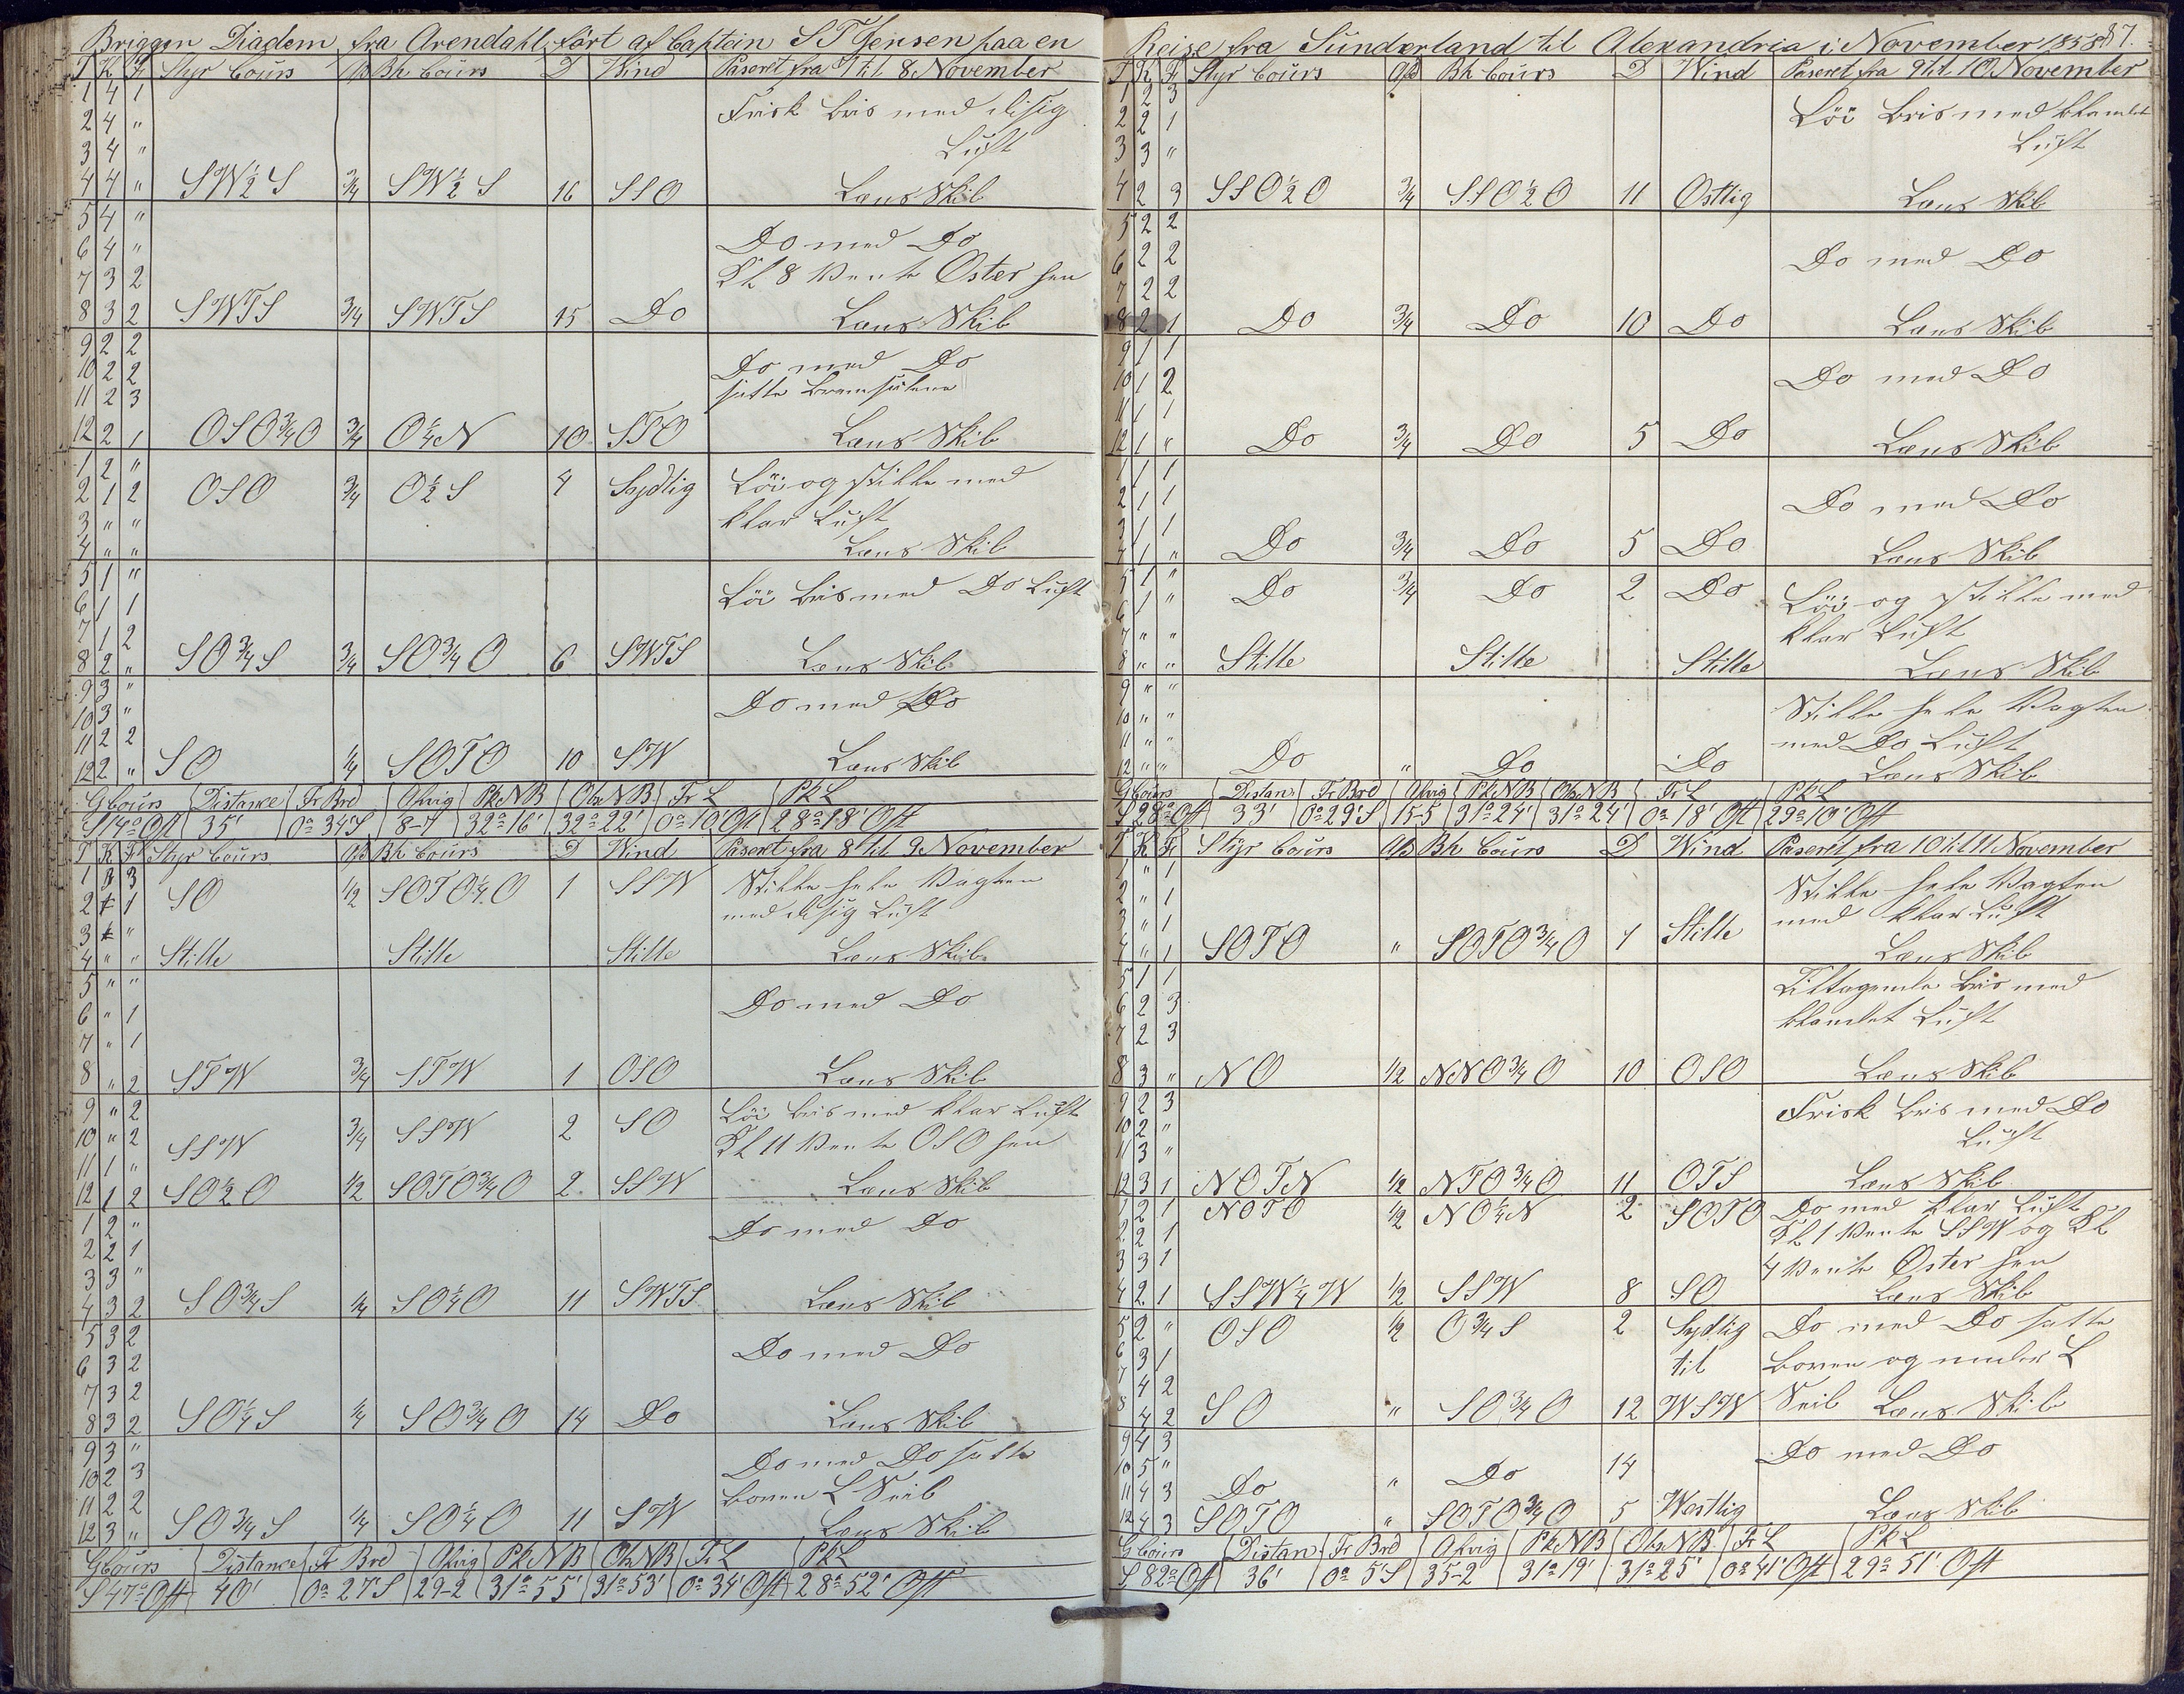 Briggen Diadem fra Arendahl, ført af Captein S T Jensen paa en
T K F Styr Cours Afd Bh Cours D Wind Paseret fra 7 til 8 November
1 4 1 Frisk Bris med disig
2 4 "
3 4 " Luft
4 4 " SW½S ¾ SW½S 16 SSO Læns Skib
5 4 "
6 4 " Do med Do
7 3 2 Kl 8 Vente Øster hen
8 3 2 SWTS ¾ SWTS 15 Do Læns Skib
9 2 2
10 2 2 Do med Do
11 2 3 satte Bramseilene
12 2 1 OSO¾O ¾ O¼N 10 STO Læns Skib
1 2 "
2 1 2 OSO ¾ O½S 4 Sydlig Löi og stille med
3 " " klar Luft
4 " " Læns Skib
5 1 "
6 1 1 Löi Bris med Do Luft
7 1 2
8 2 " SO¾S ¾ SO¾O 6 SWTS Læns Skib
9 3 "
10 3 " Do med Do
11 2 2
12 2 " SO ¼ SOTO 10 SW Læns Skib
G Cours Distance Fr Brd Afvig Pk N B Obs N B Fr L Pk L
S 14° Ost 35' 0° 34' S 8-7 32° 16' 32° 22' 0° 10' Ost 28° 18' Ost
T K F Styr Cours Afd Bh Cours D Wind Paseret fra 8 til 9 November
1 " 3 Stille hele Vagten
2 " 1 SO ½ SOTO¼O 1 SSW med disig Luft
3 " "
4 " " Stille Stille Stille Læns Skib
5 " "
6 " 1 Do med Do
7 " 1
8 " 2 STW ¾ STW 1 OSO Læns Skib
9 " 2 Löi Bris med klar Luft
10 " 2 SSW ¾ SSW 2 SO Kl 11 Vente OSO hen
11 1 "
12 1 2 SO½O ½ SOTO¾O 2 SSW Læns Skib
1 2 " Do med Do
2 2 1
3 3 "
4 3 2 SO¾S ¼ SO¼O 11 SWTS Læns Skib
5 3 2
6 3 2 Do med Do
7 3 2
8 3 2 SO¼S ¼ SO¾O 14 Do Læns Skib
9 3 " Do med Do satte
10 2 3 Boven L Seil
11 2 2
12 3 " SO¾S ¼ SO¼O 11 SW Læns Skib
G Cours Distance Fr Brd Afvig Pk N B Obs N B Fr L Pk L
S 47° Ost 40' 0° 27' S 29-2 31° 55' 31° 53' 0° 34' Ost 28° 52' Ost
Reise fra Sünderland til Alexandria i November 1858 87.
T K F Styr Cours Afd Bh Cours D Wind Paseret fra 9 til 10 November
1 2 3 Löi Bris med blandet
2 2 1
3 3 " Luft
4 2 3 SSO½O ¾ SSO½O 11 Ostlig Læns Skib
5 2 2
6 2 2 Do med Do
7 2 2
8 2 1 Do ¾ Do 10 Do Læns Skib
9 1 1
10 1 2 Do med Do
11 1 1
12 1 " Do ¾ Do 5 Do Læns Skib
1 1 1
2 1 1 Do med Do
3 1 1
4 1 " Do ¾ Do 5 Do Læns Skib
5 1 " Do ¾ Do 2 Do Löi og stille med
6 1 " klar Luft
7 " "
8 " " Stille Stille Stille Læns Skib
9 " " Stille hele Vagten
10 " " med Do Luft
11 " "
12 " " Do " Do Do Læns Skib
G Cours Distan Fr Brd Afvig Pk N B Obs N B Fr L Pk L
S 28° Ost 33' 0° 29' S 15-5 31° 24' 31° 24' 0° 18' Ost 29° 10' Ost
T K F Styr Cours Afd Bh Cours D Wind Paseret fra 10 til 11 November
1 " 1 Stille hele Vagten
2 " 1 med klar Luft
3 " 1
4 " 1 SOTO " SOTO¾O 1 Stille Læns Skib
5 1 1 Tiltagende Bris med
6 2 3 blandet Luft
7 2 3
8 3 " NO ½ NNO¾O 10 OSO Læns Skib
9 2 3 Frisk Bris med Do
10 2 " Luft
11 3 "
12 3 1 NOTN ½ NTO¾O 11 OTS Læns Skib
1 2 1 NOTO ½ NO¼N 2 SOTO Do med klar Luft
2 2 1 Kl 1 Vente SSW og Kl
3 3 1 4 Vente Øster hen
4 2 1 SSW¼W ½ SSW 8 SO Læns Skib
5 2 " OSO ½ O¾S 2 Sydlig Do med Do satte
6 3 1 til Boven og under L
7 4 2
8 4 2 SO " SO¾O 12 WSW Seil Læns Skib
9 4 3 Do med Do
10 5 "
11 4 3 Do " Do 14
12 4 3 SOTO " SOTO¾O 5 Westlig Læns Skib
G Cours Distan Fr Brd Afvig Pk N B Obs N B Fr L Pk L
S 82° Ost 36' 0° 5' S 35-2 31° 19' 31° 25' 0° 41' Ost 29° 51' Ost